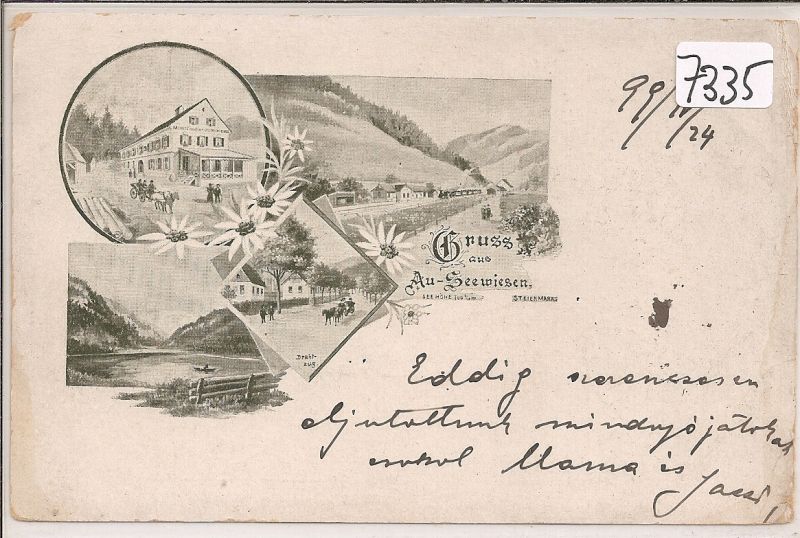 7335
99/IV/24
Gruss
aus
Au-Seewiesen,
SEEHÖHE
STEIERMARK
Draht-
zug
Eddig szerencsesen
eljutottunk mindnyájótokat
csokol Mama és